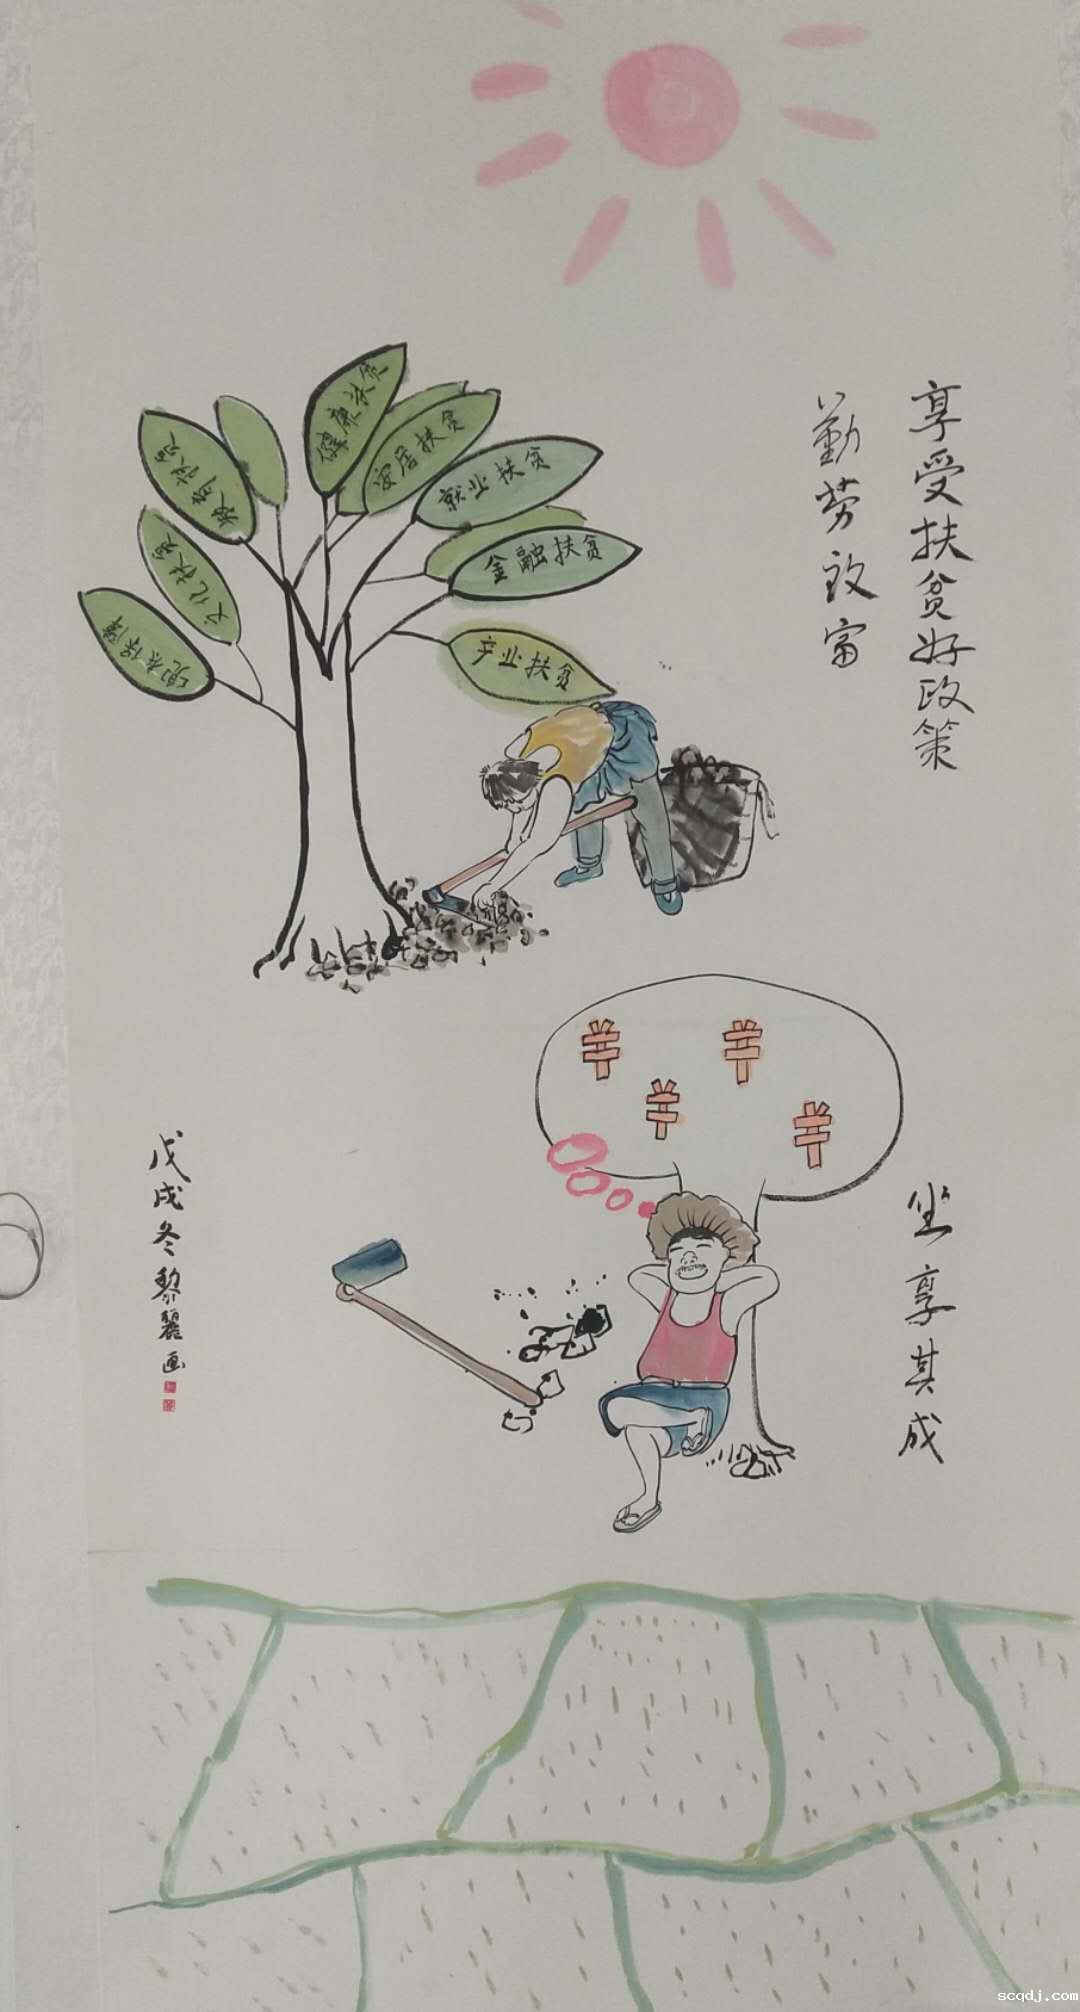 享受扶贫好政策
勤劳致富
健康扶贫
安居扶贫
就业扶贫
金融扶贫
产业扶贫
教育扶贫
文化扶贫
兜底保障
坐享其成
戊戌冬黎丽画
scqdj.com